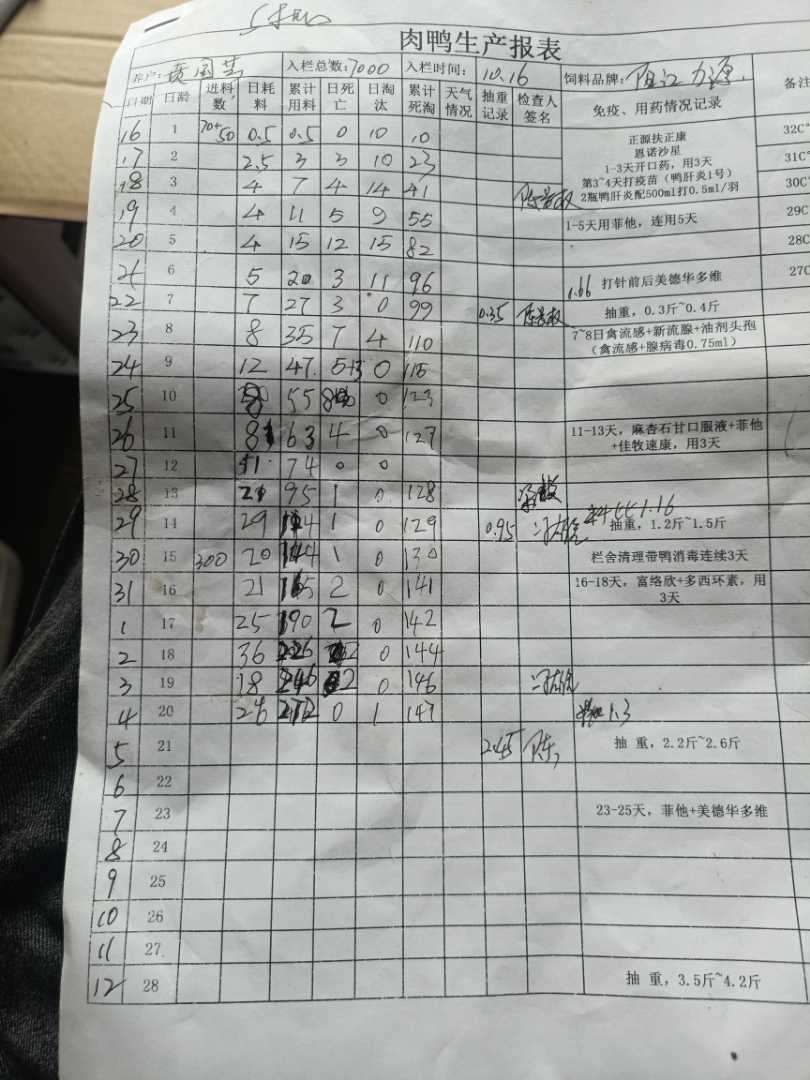 肉鸭生产报表
养户: 入栏总数:7000 入栏时间: 10.16 饲料品牌: 阳江力源
日期 日龄 进料数 日耗料 累计用料 日死亡 日淘汰 累计死淘 天气情况 抽重记录 检查人签名 免疫、用药情况记录 备注
16 1 70+50 0.5 0.5 0 10 10 正源扶正康 32C°
恩诺沙星
17 2 2.5 3 3 10 23 1-3天开口药，用3天 31C°
第3~4天打疫苗（鸭肝炎1号）
18 3 4 7 4 14 41 2瓶鸭肝炎配500ml打0.5ml/羽 30C°
19 4 4 11 5 9 55 1-5天用菲他，连用5天 29C
20 5 4 15 12 15 82 28C
21 6 5 20 3 11 96 1.66 打针前后美德华多维 27C
22 7 7 27 3 0 99 0.35 抽重，0.3斤~0.4斤
23 8 8 35 7 4 110 7~8日禽流感+新流腺+油剂头孢
（禽流感+腺病毒0.75ml）
24 9 12 47 5 0 115
25 10 8 55 8 0 123
26 11 8 63 4 0 127 11-13天，麻杏石甘口服液+菲他
+佳牧速康，用3天
27 12 11 74 0 0
28 13 21 95 1 0 128
29 14 29 1 0 129 0.95 抽重，1.2斤~1.5斤
30 15 300 20 144 1 0 130 栏舍清理带鸭消毒连续3天
31 16 21 165 2 0 141 16-18天，富络欣+多西环素，用
3天
1 17 25 190 2 0 142
2 18 36 226 2 0 144
3 19 18 246 2 0 146
4 20 26 272 0 1 147 1.3
5 21 2.45 陈 抽 重，2.2斤~2.6斤
6 22
7 23 23-25天，菲他+美德华多维
8 24
9 25
10 26
11 27
12 28 抽 重，3.5斤~4.2斤